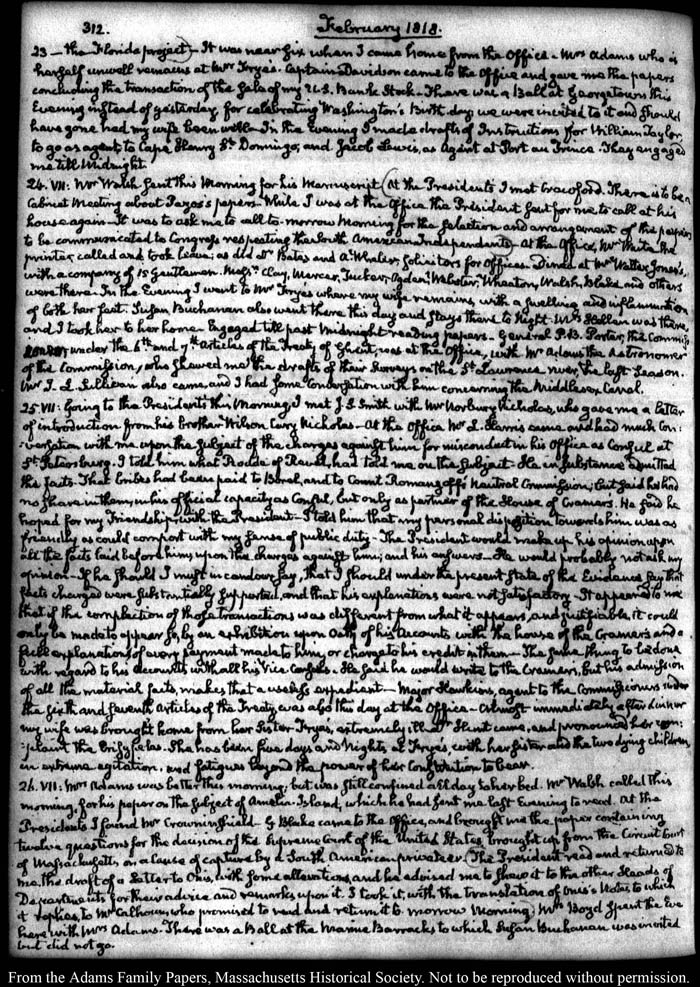 312. February 1818.
23 — the Florida project) — It was near six when I came home from the Office — Mrs Adams who is
herself unwell remains at Mrs Frye's. Captain Davidson came to the Office and gave me the papers
concluding the transaction of the sale of my U.S. Bank Stock — There was a Ball at Georgetown this
Evening instead of yesterday, for celebrating Washington's Birth day, we were invited to it and should
have gone had my wife been well — In the Evening I made drafts of Instructions for William Taylor,
to go as agent to Cape Henry St Domingo, and Jacob Lewis, as Agent at Port au Prince. They engaged
me till Midnight.
24. VII: Mr Walsh sent this Morning for his Manuscript (At the Presidents I met Crawford. There is to be a
Cabinet Meeting about Pazos's papers — While I was at the Office the President sent for me to call at his
house again — It was to ask me to call to-morrow Morning for the selection and arrangement of the papers
to be communicated to Congress respecting the South American Independents — At the Office, Mr
printer, called and took leave; as did Dr Bates and A. Whaler, Solicitors for Offices — Dined at Mr Walter Jones's,
with a company of 15 Gentlemen. Messrs Clay, Mercer, Tucker, Ogden, Webster, Wheaton, Walsh, Blake and others
were there. In the Evening I went to Mr Frye's where my wife remains, with a swelling and inflammation
of both her feet. Susan Buchanan also went there this day and stays there to Night. Mrs Hellen was there,
and I took her to her home. Engaged till past Midnight reading papers. General P. B. Porter, the Commiss
under the 6th and 7th Articles of the Treaty of Ghent, was at the Office, with Mr Adams the Astronomer
of the Commission, who shewed me the drafts of their Surveys on the St Lawrence river, the last Season.
Mr J. L. Sullivan also came and I had some conversation with him concerning the Middlesex Canal.
25. VII: Going to the Presidents this Morning, I met J. S. Smith with Mr Norbury Nicholas, who gave me a letter
of introduction from his brother Wilson Cary Nicholas — At the Office Mr L. Harris came and had much con:
:versation with me upon the subject of the charges against him for misconduct in his Office as Consul at
St Petersburg. I told him what Rodde of Reval, had told me on the subject — He in substance admitted
the facts. That bribes had been paid to Borel, and to Count Romanzoff's Neutral Commission; but said he had
no share in them, in his official capacity as Consul, but only as partner of the House of Cramers. He said he
hoped for my Friendship with the President — I told him that my personal disposition towards him was as
friendly as could comport with my sense of public duty — The President would make up his opinion upon
all the facts laid before him, upon the charges against him; and his answers — He would probably not ask my
opinion — If he should I must in candour say, that I should under the present State of the Evidence say that
facts charged were substantially supported, and that his explanations were not satisfactory — It appeared to me
that if the complection of those transactions was different from what it appears, and justifiable, it could
only be made to appear so, by an exhibition upon Oath of his Accounts with the house of the Cramers and a
full explanation of every payment made to him, or charge to his credit in them — The same thing to be done
with regard to his accounts with all his Vice Consuls — He said he would write to the Cramers, but his admission
of all the material facts, makes that a useless expedient — Major Hawkins, agent to the Commissioners under
the sixth and seventh articles of the Treaty, was also this day at the Office — Almost immediately after dinner
my wife was brought home from her Sister Frye's, extremely ill — Dr Hunt came, and pronounced her com:
:plaint the Erisypelas. She has been five days and Nights, at Frye's, with her sister and the two dying children,
in extreme agitation, and fatigues beyond the power of her Constitution to bear.
26. VII: Mrs Adams was better this morning, but was still confined all day to her bed. Mr Walsh called this
morning, for his paper on the subject of Amelia Island, which he had sent me last Evening to read. At the
Presidents I found Mr Crowninshield — G. Blake came to the Office, and brought me the paper containing
twelve questions for the decision of the Supreme Court of the United States, brought up from the Circuit Court
of Massachusetts, on a cause of capture by a South American privateer. (The President read and returned to
me, the draft of a Letter to Onis, with some alterations, and he advised me to shew it to the other Heads of
Departments for their advice and remarks upon it. I took it, with the translation of Onis's Notes to which
it replies, to Mr Calhoun, who promised to read and return it to-morrow Morning) Mrs Boyd spent the Eve
here with Mrs Adams. There was a Ball at the Marine Barracks to which Susan Buchanan was invited
but did not go.
From the Adams Family Papers, Massachusetts Historical Society. Not to be reproduced without permission.